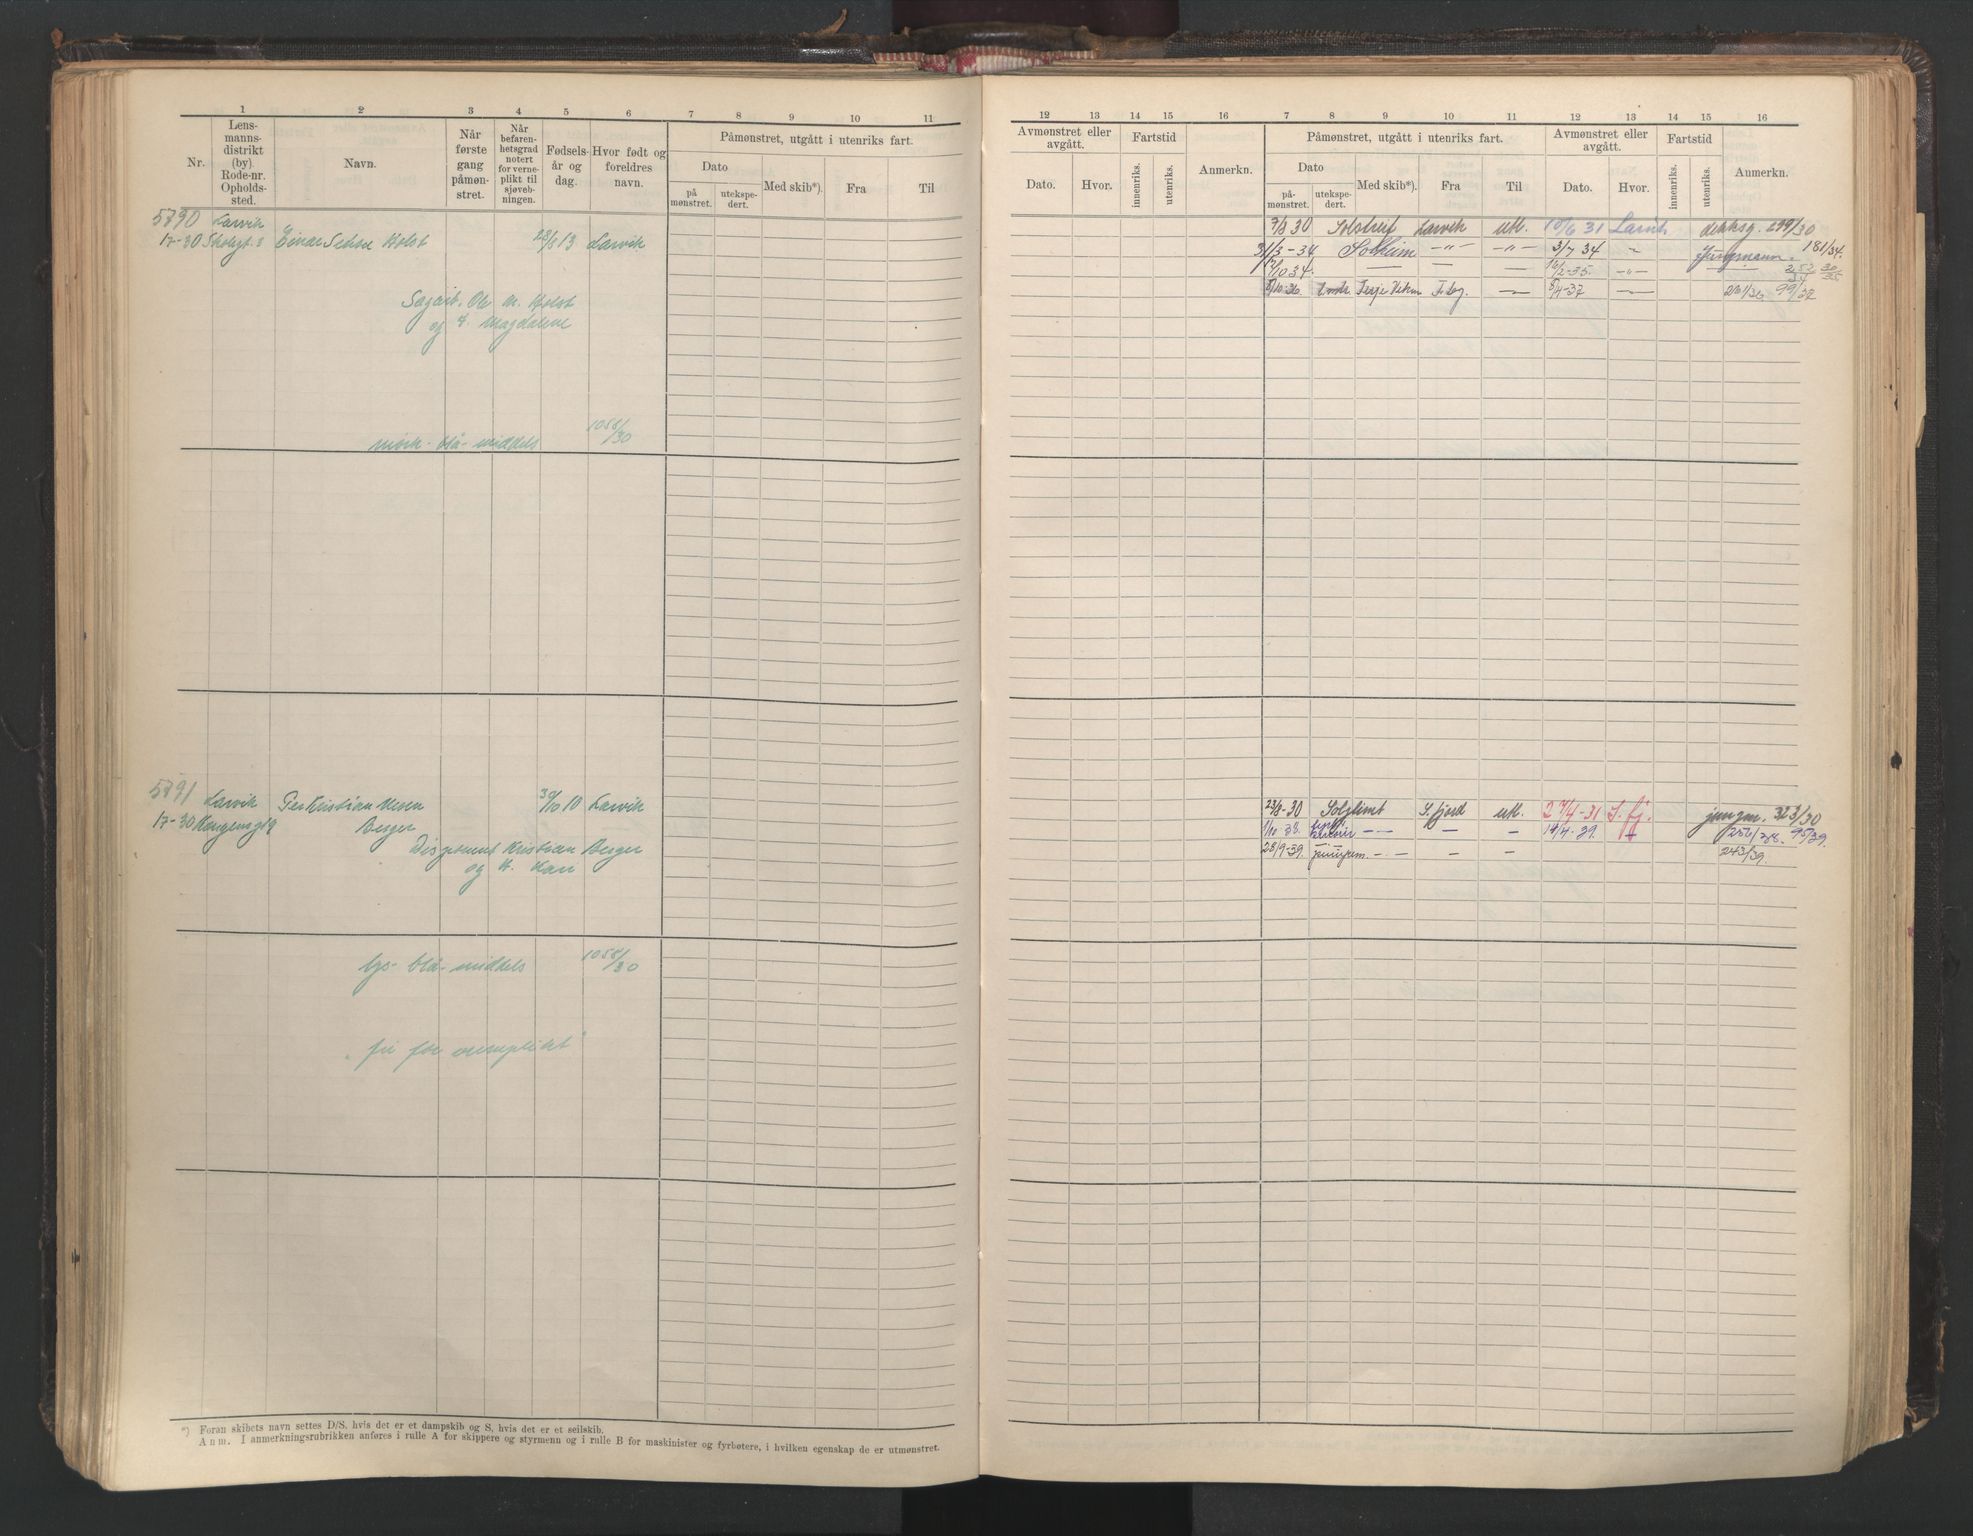 1 2 3 4 5 6 7 8 9 10 11
Nr.
Lens-
manns-
distrikt
(by).
Rode-nr.
Opholds-
sted.
Navn.
Når
første
gang
påmøn-
stret.
Når
befaren-
hetsgrad
notert
for verne-
plikt til
sjøveb-
ningen.
Fødsels-
år og
dag.
Hvor født og
foreldres
navn.
Påmønstret, utgått i utenriks fart.
Dato
på
mønstret.
utekspe-
dert.
Med skib*).
Fra
Til
5790 Larvik
17-30 Skolegt. Einar Holst 13 Larvik
Ole M. Holst
og H. Magdalene
mørk - blå - middels 1055/30
5791 Larvik Per Kristian Berger 30/10 10 Larvik
17-30 Kongensgt 9
Disponent Kristian Berger
og H. Kari
lys - blå - middels 1055/30
„ fri for verneplikt "
*) Foran skibets navn settes D/S, hvis det er et dampskib og S, hvis det er et seilskib.
Anm. I anmerkningsrubrikken anføres i rulle A for skippere og styrmenn og i rulle B for maskinister og fyrbøtere, i hvilken egenskap de er utmønstret.
12 13 14 15 16 7 8 9 10 11 12 13 14 15 16
Avmønstret eller
avgått.
Dato.
Hvor.
Fartstid
innenriks.
utenriks.
Anmerkn.
Påmønstret, utgått i utenriks fart.
Dato
på-
mønstret.
utekspe-
dert.
Med skib*).
Fra
Til
Avmønstret eller
avgått.
Dato.
Hvor.
Fartstid
innenriks.
utenriks.
Anmerkn.
7/8 30 Solstreif Larvik utl. 10/6 31 Larvik dekksg. 299/30
31/3-34 Solheim -"- -"- 3/7 34 " Jungmann. 181/34.
-"-
8/4-37 99/37
23/8-30 Solglimt S.fjord utl. 27/4-31 S.fj. jungm. 323/30
1/10 38. - - - - 14/4-39. 256/38. 95/39.
28/9-39. - - - - 243/39.